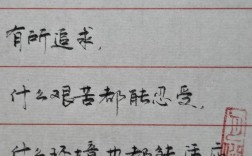 有所追求，
什么艰苦都能忍受，
什么环境也都能适应